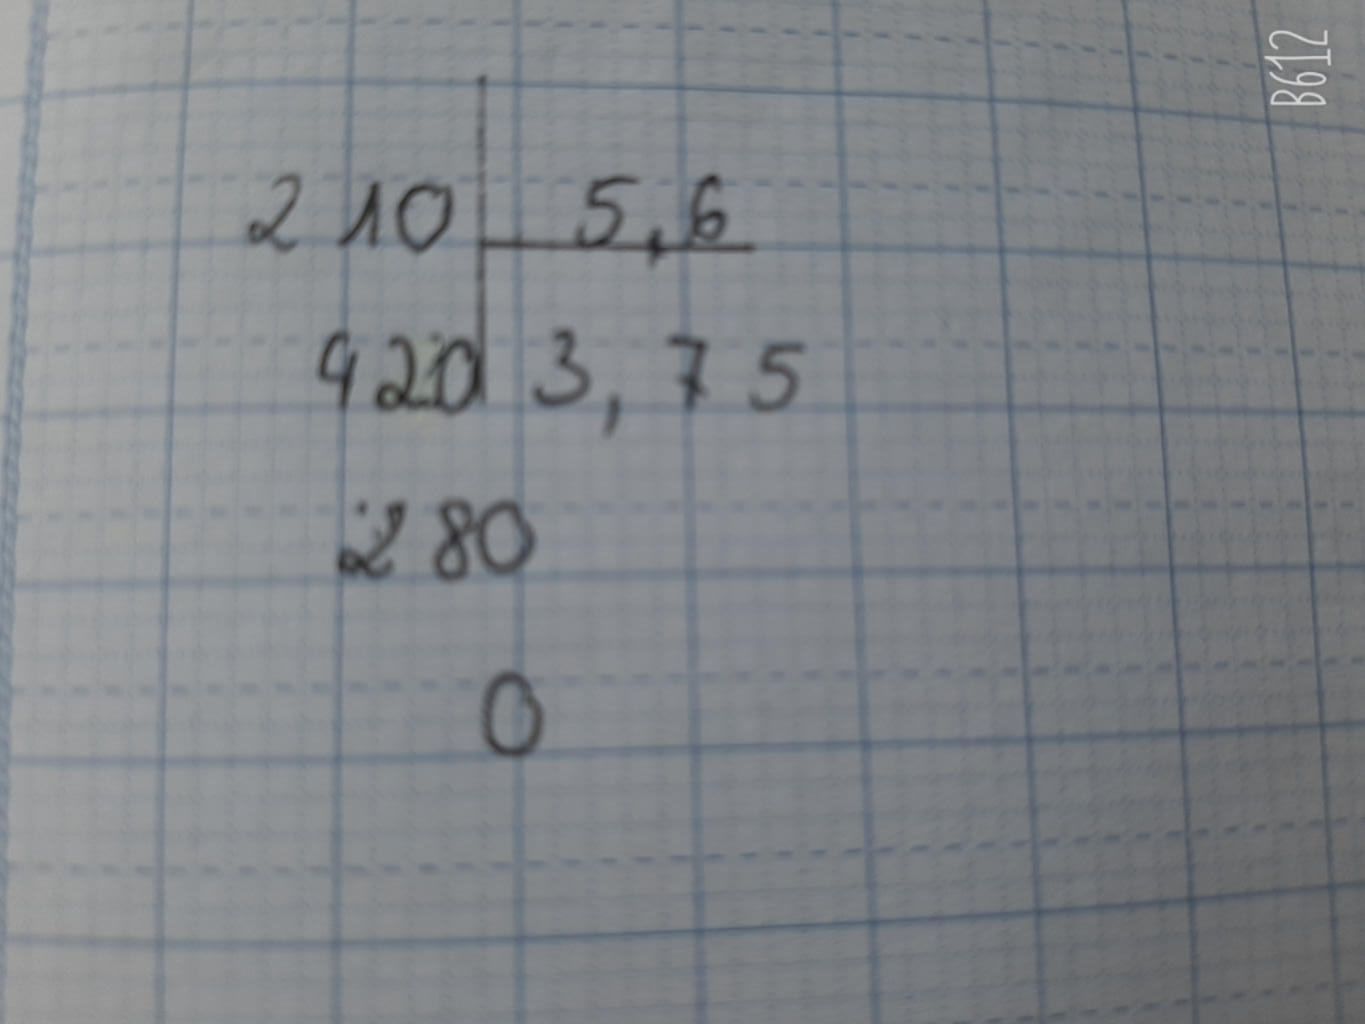 210 5,6
420 3,75
280
0
B612